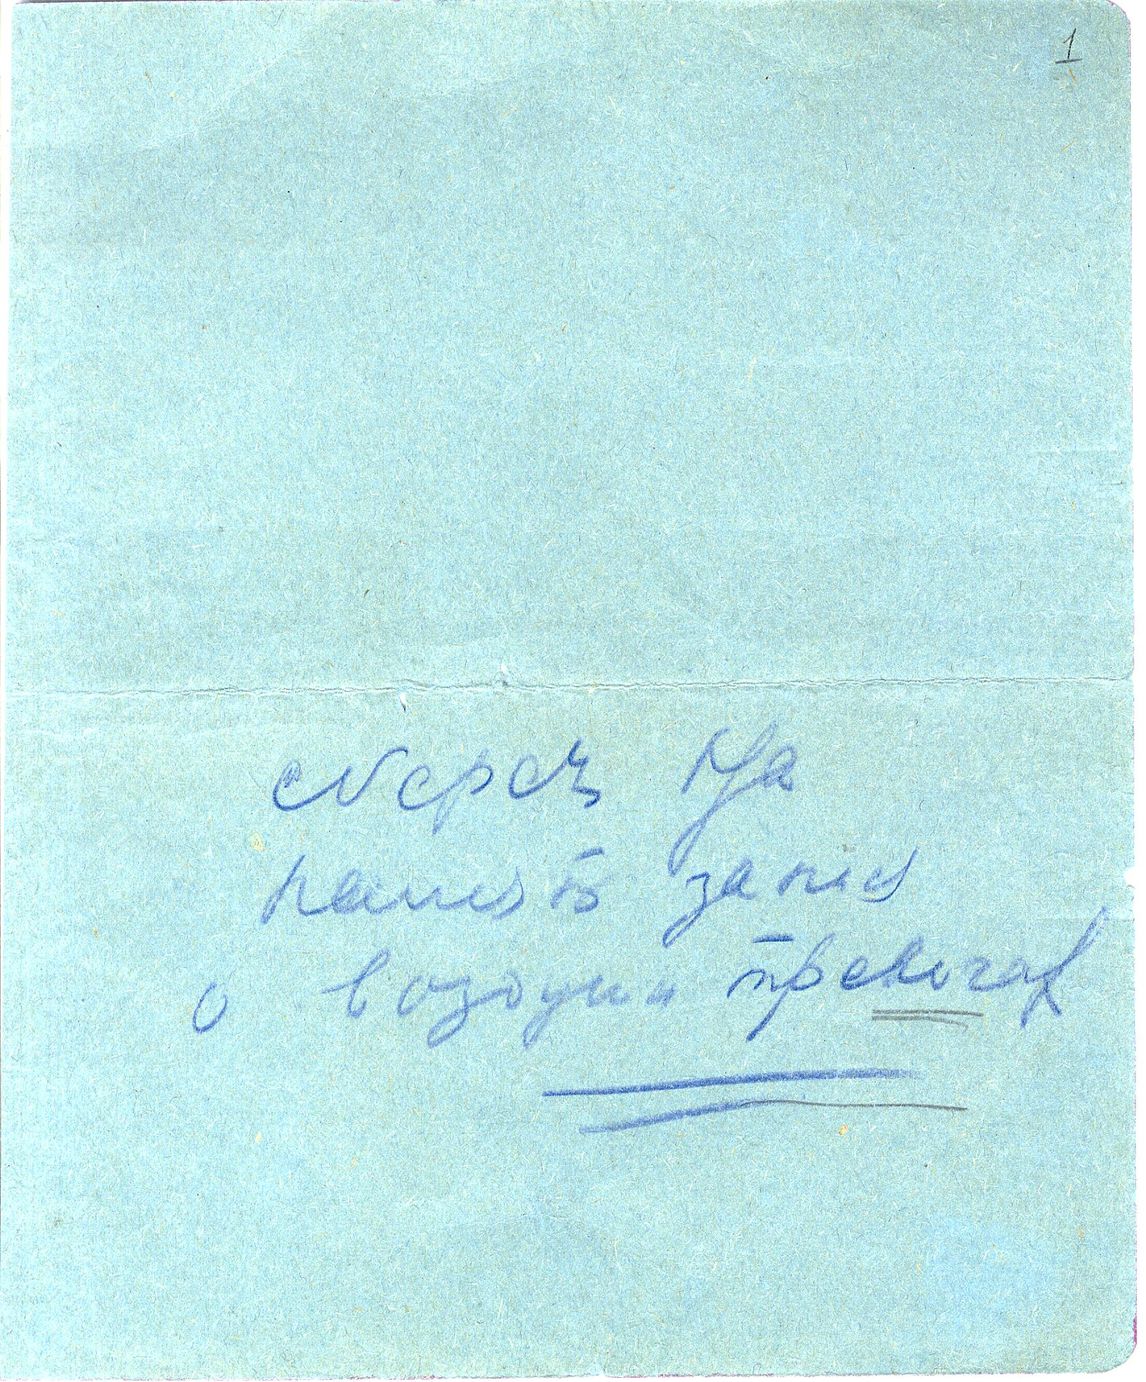 1
сберечь на
память запис
о воздушн тревогах